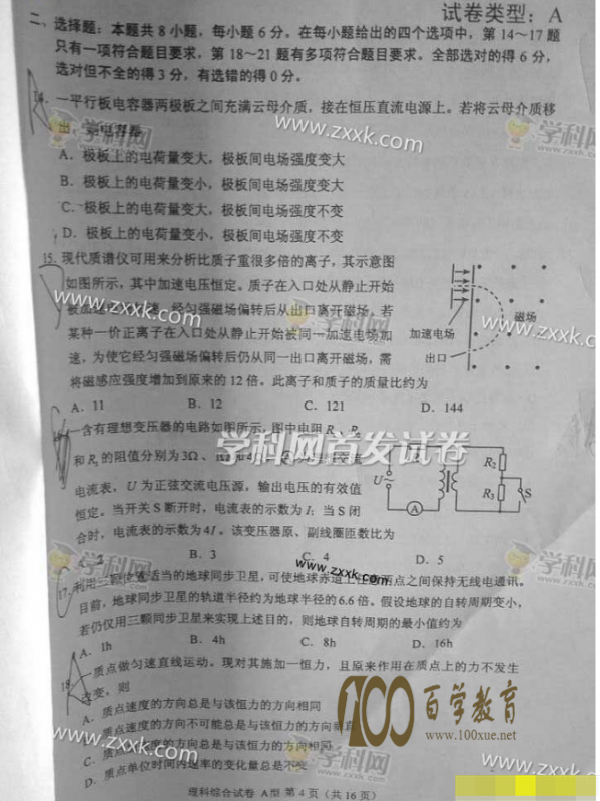 试卷类型：A
二、选择题：本题共8小题，每小题6分。在每小题给出的四个选项中，第14～17题
只有一项符合题目要求，第18～21题有多项符合题目要求。全部选对的得6分，
选对但不全的得3分，有选错的得0分。
一平行板电容器两极板之间充满云母介质，接在恒压直流电源上。若将云母介质移
出，则电容器
A．极板上的电荷量变大，极板间电场强度变大
B．极板上的电荷量变小，极板间电场强度变大
C．极板上的电荷量变大，极板间电场强度不变
D．极板上的电荷量变小，极板间电场强度不变
15．现代质谱仪可用来分析比质子重很多倍的离子，其示意图
如图所示，其中加速电压恒定。质子在入口处从静止开始
被加速电场加速，经匀强磁场偏转后从出口离开磁场。若
某种一价正离子在入口处从静止开始被同一加速电场加
速，为使它经匀强磁场偏转后仍从同一出口离开磁场，需
将磁感应强度增加到原来的12倍。此离子和质子的质量比约为
加速电场
出口
磁场
A．11 B．12 C．121 D．144
一含有理想变压器的电路如图所示，图中电阻R₁、R₂
和R₃的阻值分别为3Ω、
电流表，U为正弦交流电压源，输出电压的有效值
恒定。当开关S断开时，电流表的示数为I；当S闭
合时，电流表的示数为4I。该变压器原、副线圈匝数比为
U
A
R₂
R₃
S
A．2 B．3 C．4 D．5
17．利用三颗位置适当的地球同步卫星，可使地球赤道上任意两点之间保持无线电通讯。
目前，地球同步卫星的轨道半径约为地球半径的6.6倍。假设地球的自转周期变小，
若仍仅用三颗同步卫星来实现上述目的，则地球自转周期的最小值约为
A．1h B．4h C．8h D．16h
18．一质点做匀速直线运动。现对其施加一恒力，且原来作用在质点上的力不发生
改变，则
A．质点速度的方向总是与该恒力的方向相同
B．质点速度的方向不可能总是与该恒力的方向垂直
C．质点加速度的方向总是与该恒力的方向相同
D．质点单位时间内速率的变化量总是不变
理科综合试卷 A型 第4页（共16页）
学科网
www.zxxk.com
学科网首发试卷
100百学教育
www.100xue.net